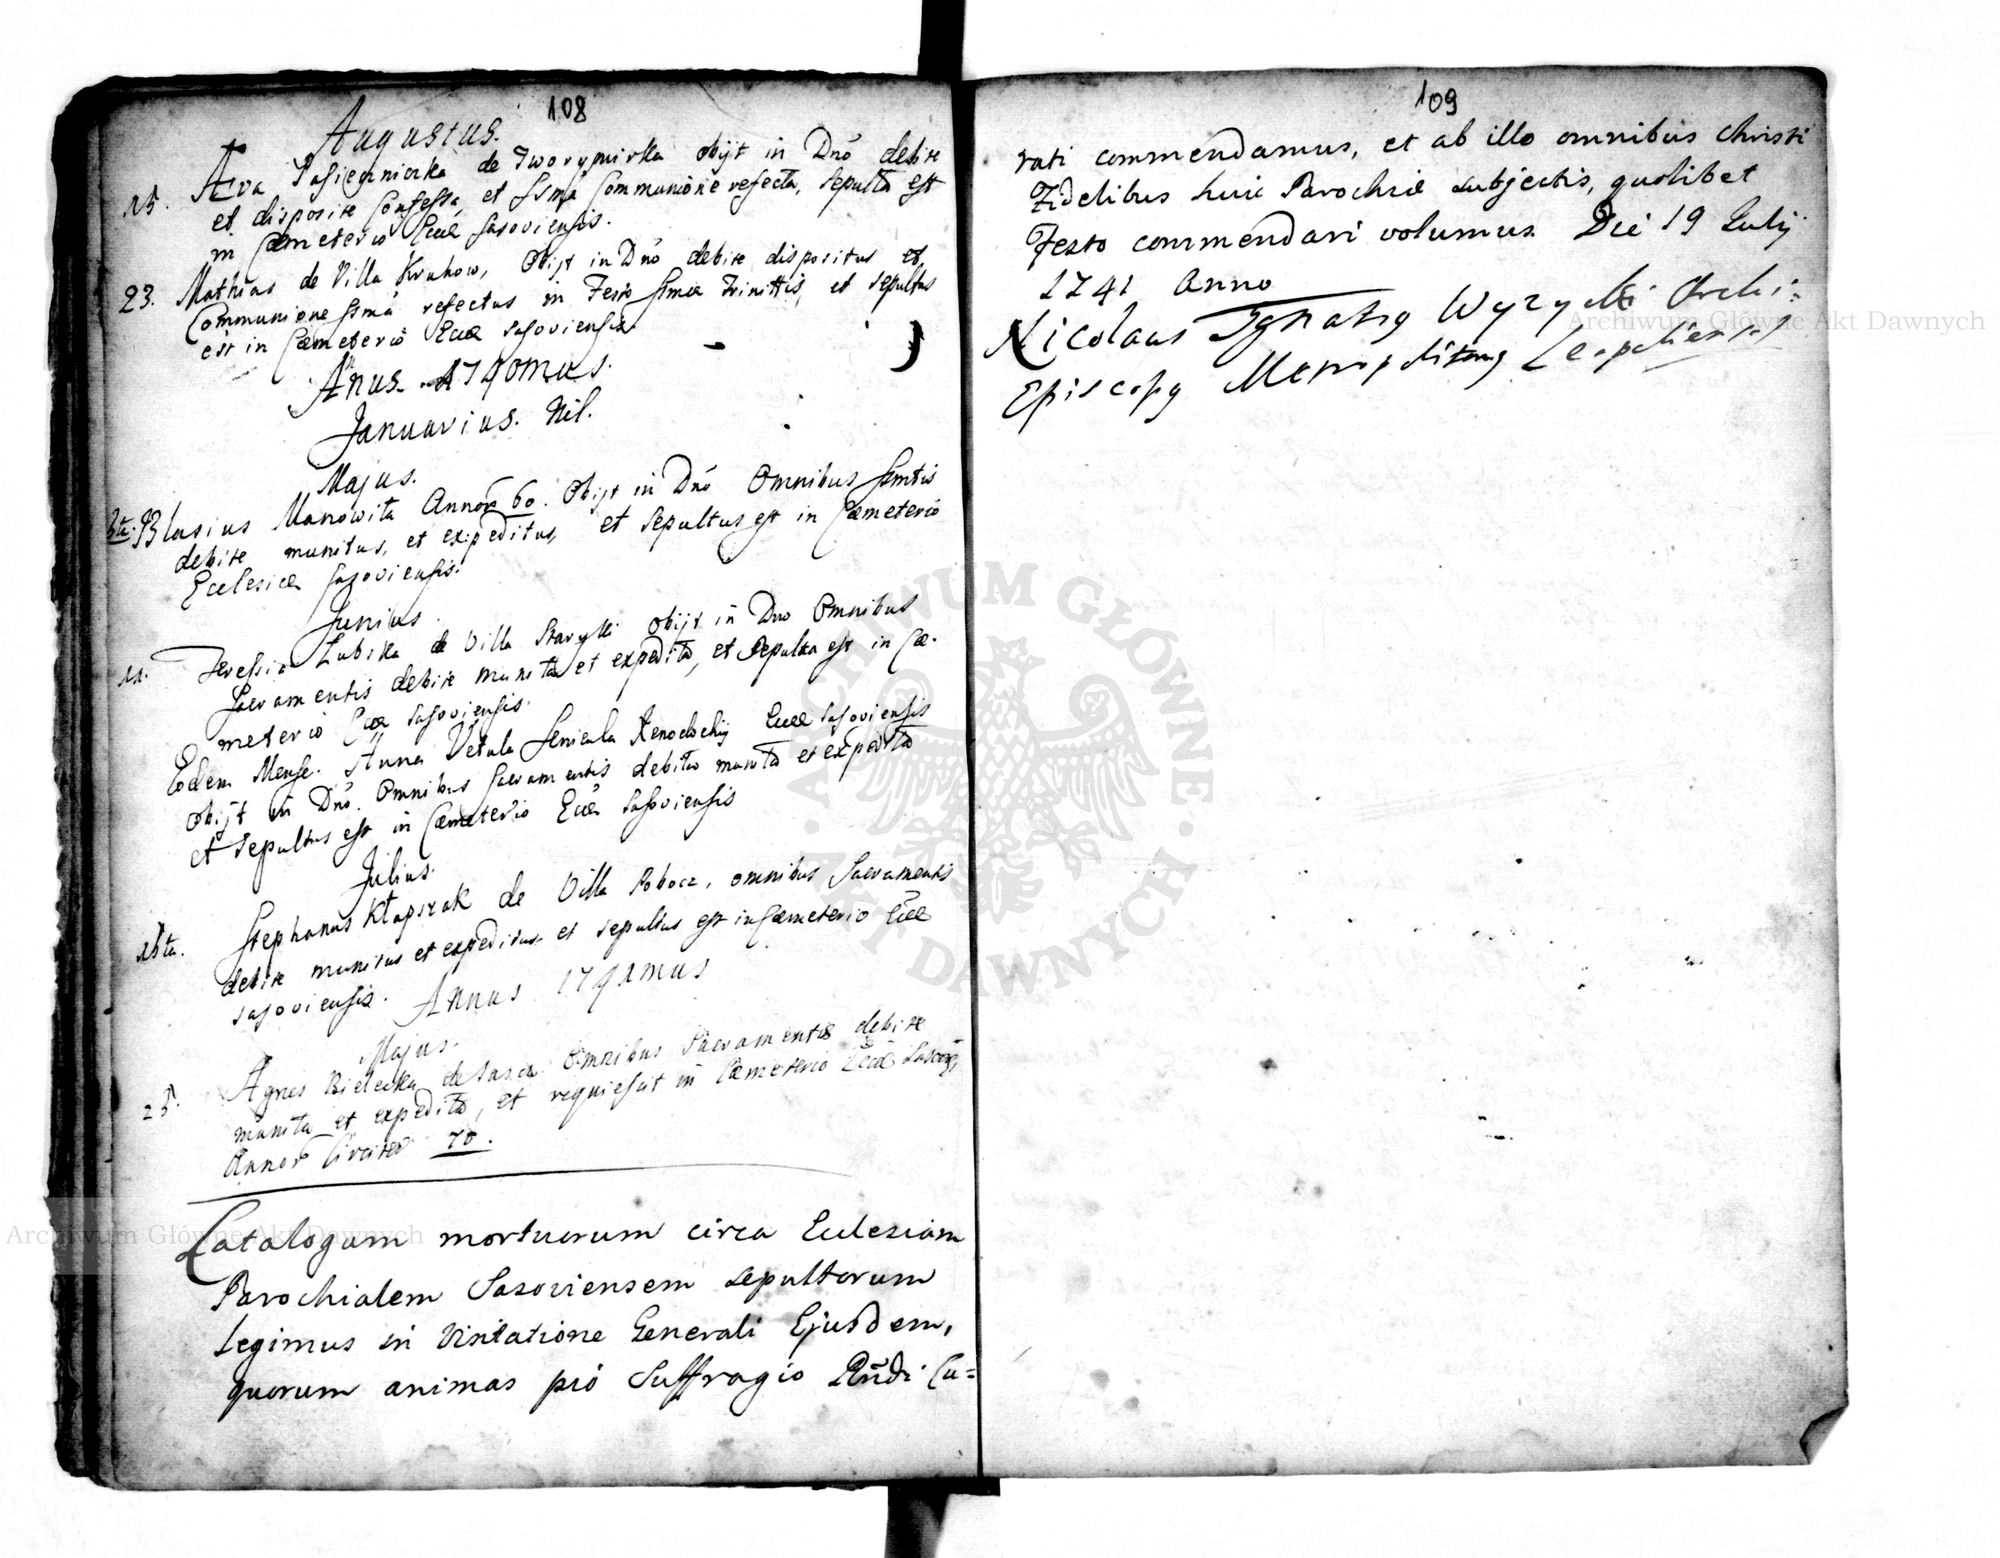 108
Augustus.
15. Eva Pasiecznicka de obijt in Dnõ debite
et disposite Confessa, et SSmã Communione refecta, Sepulta est
in Cæmeterio Eccæ Sasoviensis.
23. Mathias de Villa Krukow, Obijt in Dnõ debite dispositus et
Communione SSmã refectus in Festo SSmæ Trinittis, et sepultus
est in Cæmeterio Eccæ Sasoviensis.
Anus 1740mus.
Januarius. Nil.
Majus.
3tia. Blasius Manowita Annor 60. Obijt in Dnõ Omnibus Smtis
debite munitus, et expeditus, et Sepultus est in Cæmeterio
Ecclesiæ Sasoviensis.
Junius.
11. Teressia Lubska de Villa obijt in Dno Omnibus
Sacramentis debite munita et expedita, et Sepulta est in Cæ-
meterio Eccæ Sasoviensis.
Eodem Mense. Anna Vetula Xenodochij Eccæ Sasoviensis
obijt in Dnõ. Omnibus Sacramentis debite munita et expedita
et Sepultus est in Cæmeterio Eccæ Sasoviensis
Julius.
15ta. Stephanus Kłapszak de Villa Pobocz, omnibus Sacramentis
debite munitus et expeditus et sepultus est in Cæmeterio Eccæ
Sasoviensis.
Annus 1741mus
Majus.
25. Agnes Bielecka de Omnibus Sacramentis debite
munita et expedita, et requiescit in Cæmeterio Eccæ
Annor Circiter 70.
Catalogum mortuorum circa Eclesiam
Parochialem Sasoviensem sepultorum
Legimus in Visitatione Generali Ejusdem,
quorum animas pió Suffragio Rñdi Cu=
109
rati commendamus, et ab illo omnibus Christi
Fidelibus huic Parochiæ subjectis, quolibet
Festo commendari volumus. Die 19 Julij
1741 Anno
Nicolaus Ignatig Wyzycki Archi:
Episcopg Metropolitang Leopoliensis
ARCHIWUM GŁÓWNE · AKT DAWNYCH ·
Archiwum Główne Akt Dawnych
Archiwum Główne Akt Dawnych